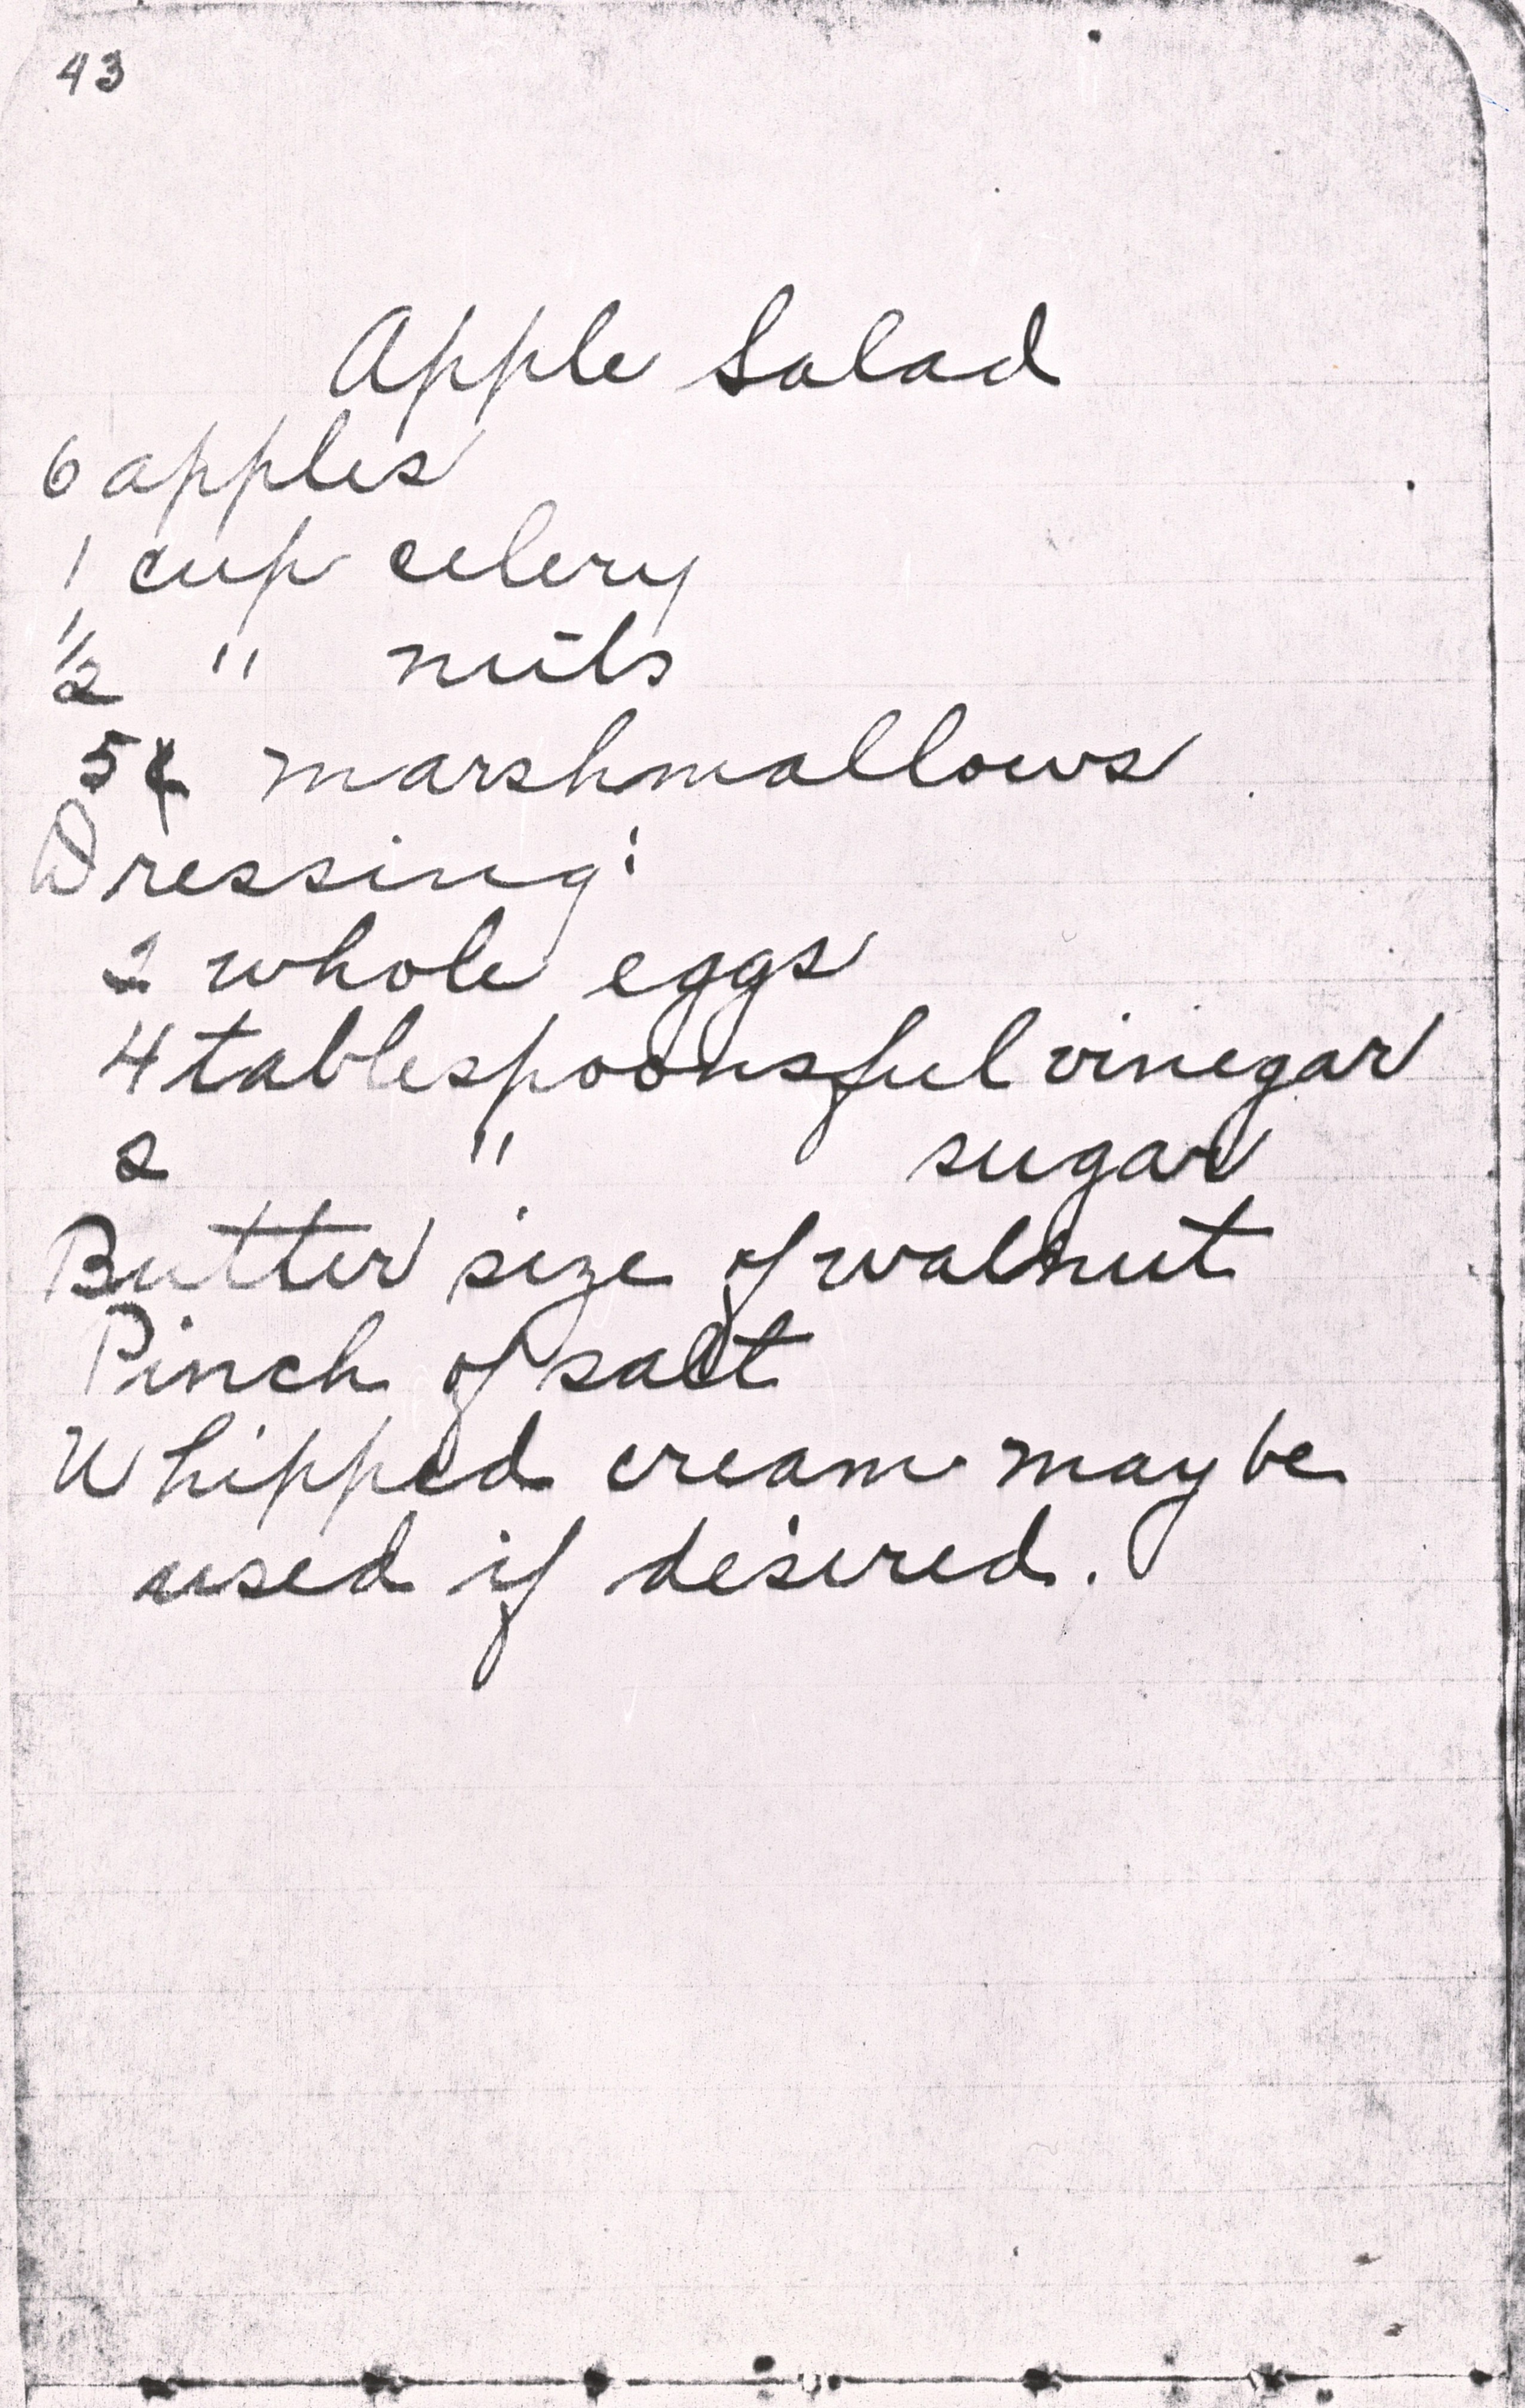 43
Apple Salad
6 apples
1 cup celery
1/2 " nuts
5¢ marshmallows
Dressing:
2 whole eggs
4 tablespoonsful vinegar
2 " sugar
Butter size of walnut
Pinch of salt
Whipped cream may be
used if desired.